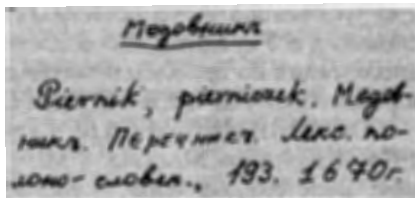 Медовникъ
Piernik, pierniczek. Медов-
никъ. Лекс. по-
лоно-словен., 193. 1670г.